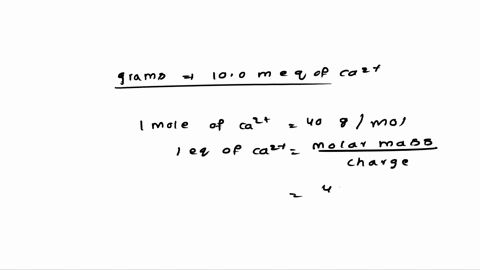 grams → 10.0 meq of ca²⁺
1 mole of ca²⁺ = 40 g/mol
1 eq of ca²⁺ = molar mass / charge
= 4